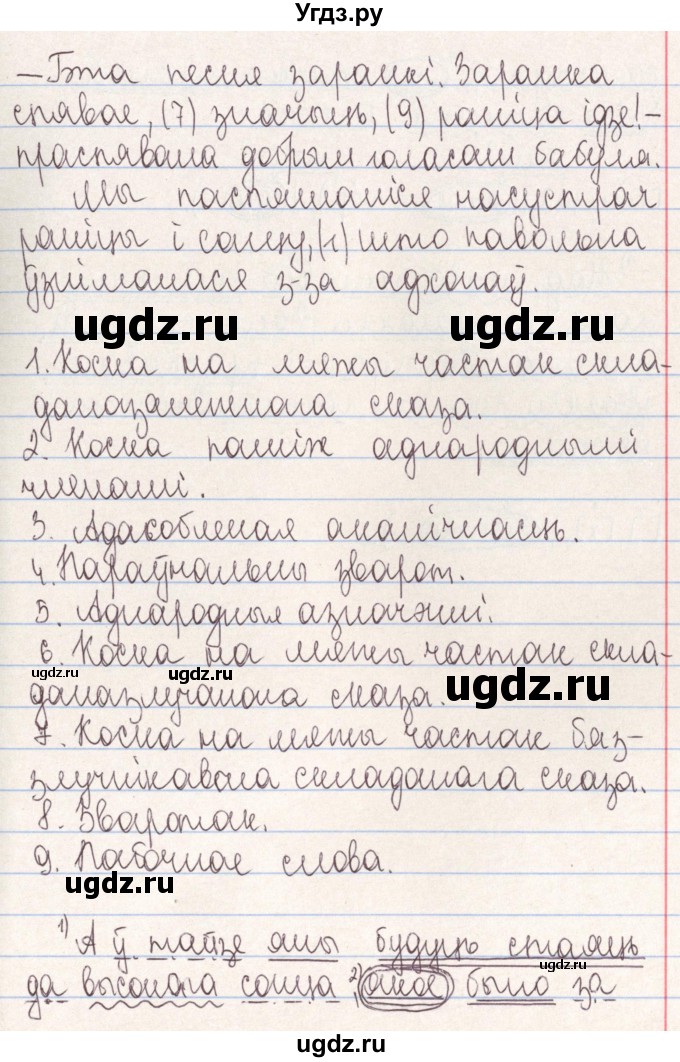 Угдз.ру
– Гэта песня заранкі. Заранка
спявае, (7) значыць, (9) раніца ідзе! –
праспявала добрым голасам бабуля.
Мы паспяшаліся насустрач
раніцы і сонцу, (1) што павольна
ўзнімалася з-за адхонаў.
ugdz.ru ugdz.ru
1. Коска на мяжы частак скла-
даназалежнага сказа.
2. Коска паміж аднароднымі
членамі.
3. Адасобленая акалічнасць.
4. Параўнальны зварот.
5. Аднародныя азначэнні.
6. Коска на мяжы частак скла-
ugdz.ru ugdz.ru ugdz.ru
даназлучанага сказа.
7. Коска на мяжы частак бяз-
злучнікавага складанага сказа.
8. Зваротак.
9. Пабочнае слова.
ugdz.ru
1) А ў тайзе яны будуць стаяць
ugdz.ru
да высокага сонца 2), якое было за
ugdz.ru